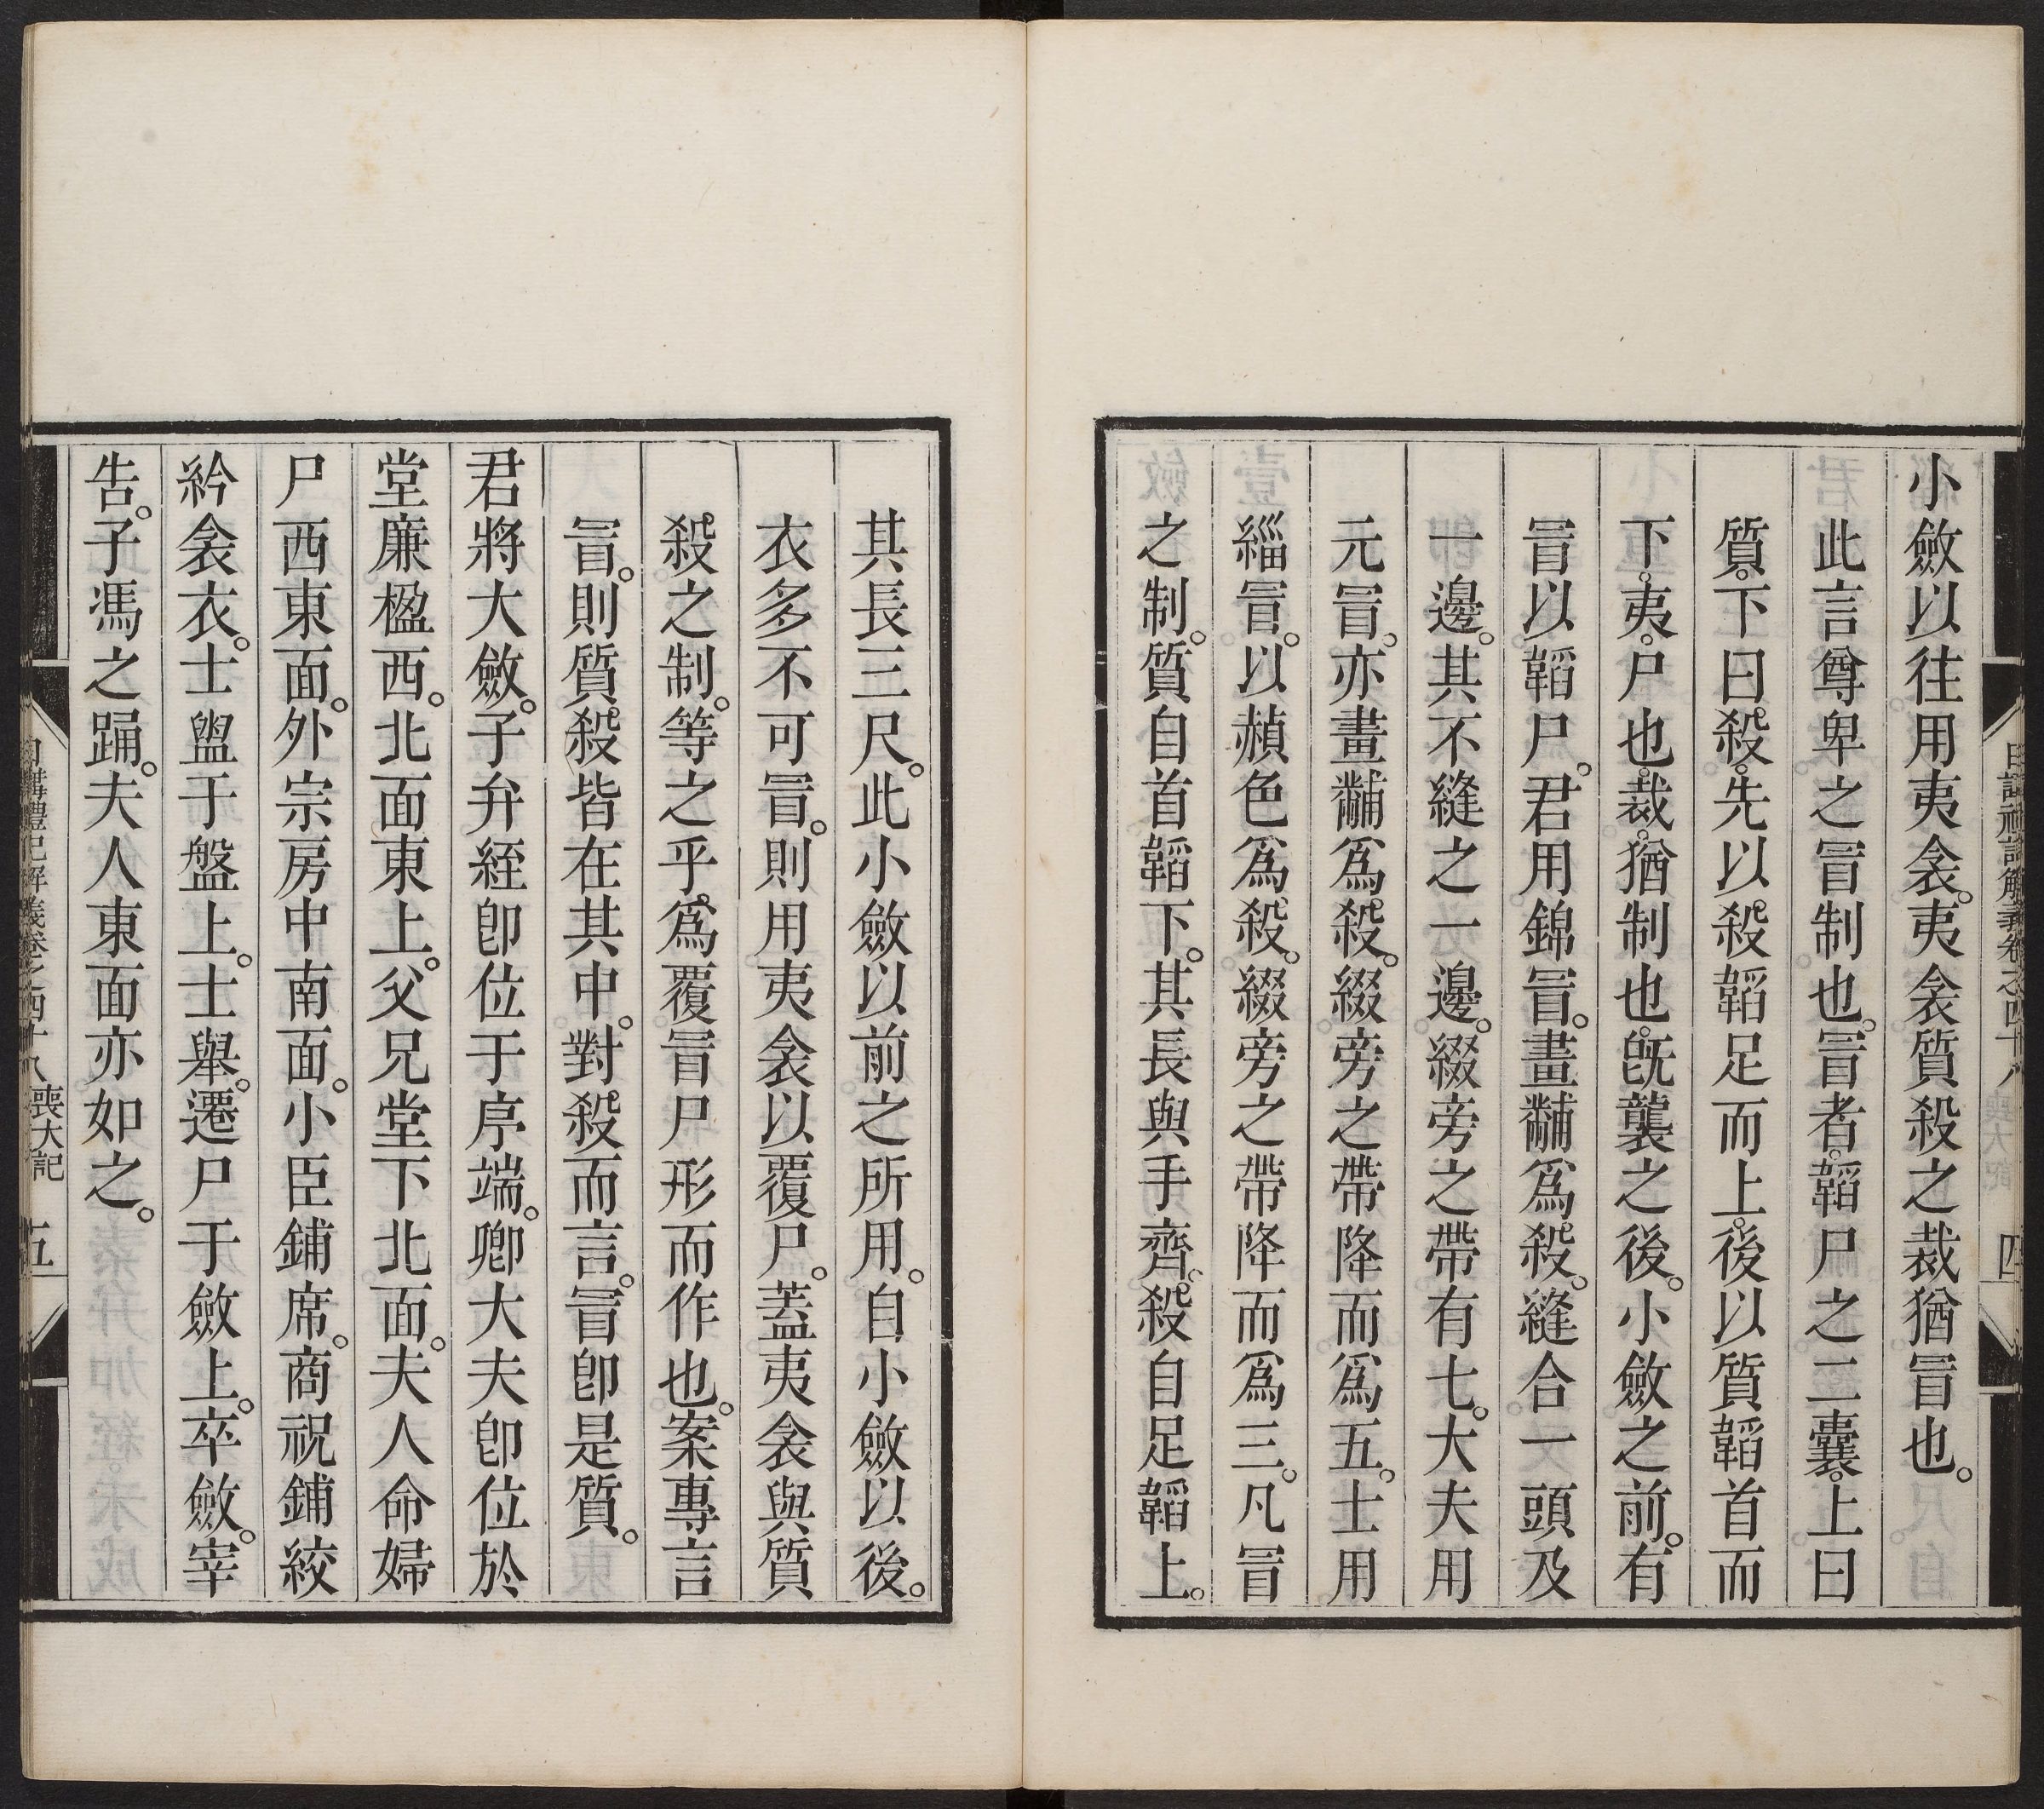 小斂以往用夷衾。夷衾質殺之裁猶冒也。
此言尊卑之冒制也。冒者。韜尸之二囊。上曰
質。下曰殺。先以殺韜足而上。後以質韜首而
下。夷。尸也。裁。猶制也。旣襲之後。小斂之前。有
冒以韜尸。君用錦冒。畫黼爲殺。縫合一頭及
一邊。其不縫之一邊。綴旁之帶有七。大夫用
元冒。亦畫黼爲殺。綴旁之帶降而爲五。士用
緇冒。以赬色爲殺。綴旁之帶降而爲三。凡冒
之制。質自首韜下。其長與手齊。殺自足韜上。
日講禮記解義卷之四十八 喪大記 四
其長三尺。此小斂以前之所用。自小斂以後。
衣多不可冒。則用夷衾以覆尸。蓋夷衾與質
殺之制。等之乎。爲覆冒尸形而作也。案專言
冒。則質殺皆在其中。對殺而言。冒卽是質。
君將大斂。子弁絰卽位于序端。卿大夫卽位於
堂廉楹西。北面東上。父兄堂下北面。夫人命婦
尸西東面。外宗房中南面。小臣鋪席。商祝鋪絞
紟衾衣。士盥于盤上。士舉。遷尸于斂上。卒斂。宰
告。子馮之踊。夫人東面亦如之。
日講禮記解義卷之四十八 喪大記 五